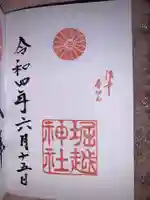 堀越
神社
令和四年六月十五日